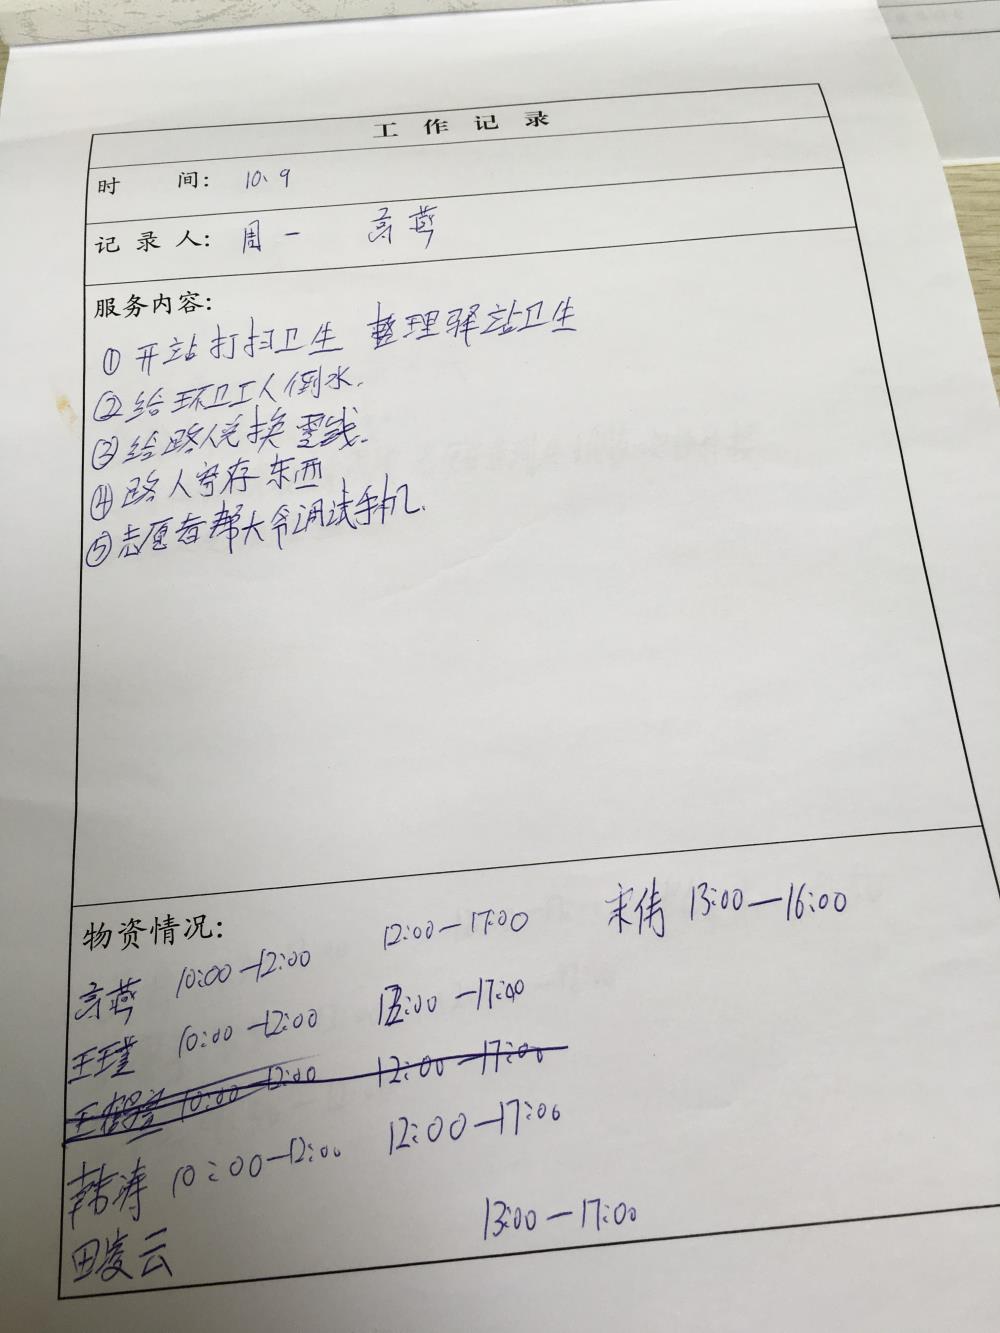 工作记录
时 间: 10、9
记录人: 周一 高燕
服务内容:
①开站打扫卫生 整理驿站卫生
②给环卫工人倒水.
③给路人兑换零线.
④路人寄存东西
⑤志愿者帮大爷调试手机.
物资情况:
高燕 10:00—12:00 12:00—17:00 宋伟 13:00—16:00
王瑾 10:00—12:00 :00—17:00
王 10:00 12:00 12:00—17:00
韩涛 10:00—12:00 12:00—17:00
田凌云 13:00—17:00